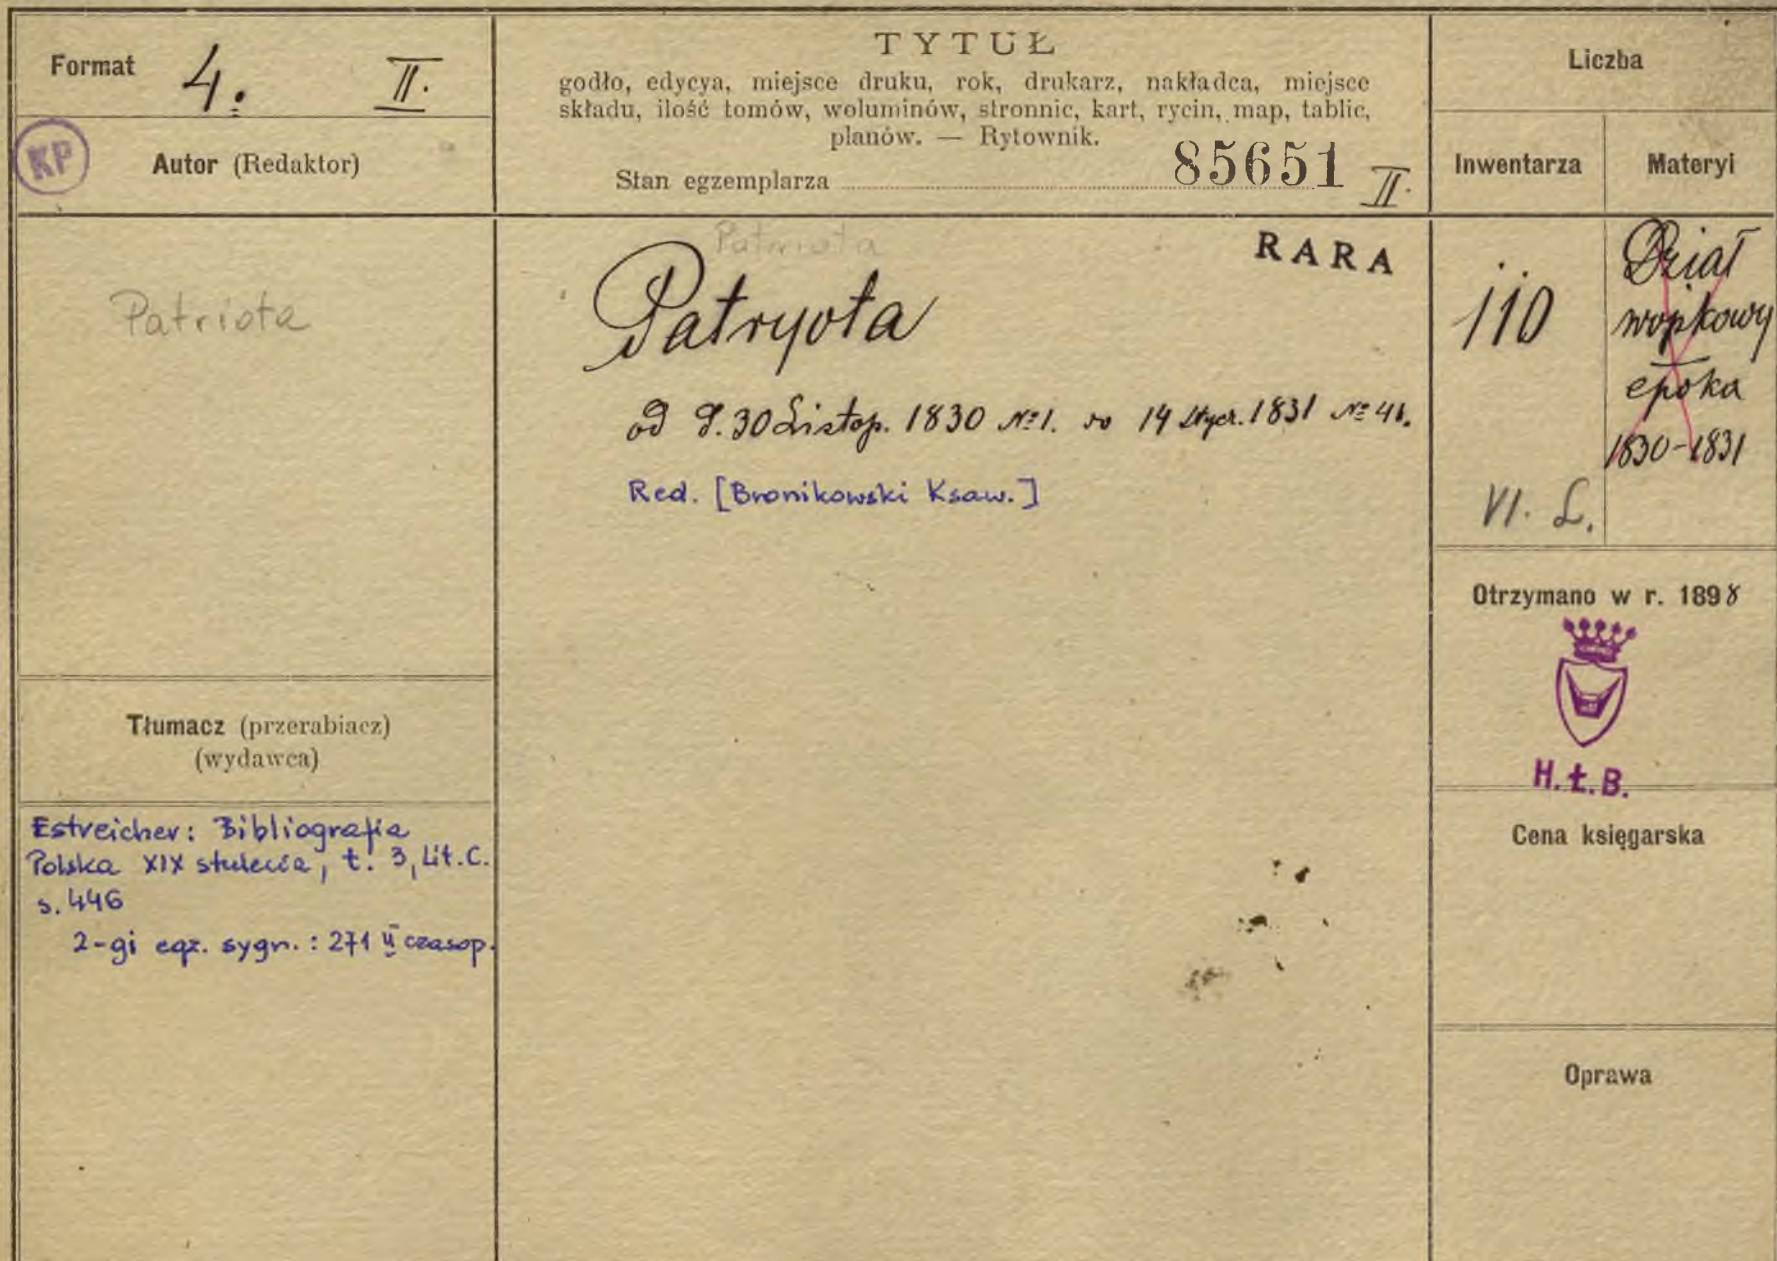 Format 4. II.
KP
Autor (Redaktor)
TYTUŁ
godło, edycya, miejsce druku, rok, drukarz, nakładca, miejsce
składu, ilość tomów, woluminów, stronnic, kart, rycin, map, tablic,
planów. — Rytownik.
Stan egzemplarza 85651 II.
Liczba
Inwentarza
Materyi
Patriota
Patriota
RARA
Patryota
od d. 30 Listop. 1830 № 1. do 14 Stycz. 1831 № 41.
Red. [Bronikowski Ksaw.]
110
VI. L.
Dział
epoka
1830-1831
Otrzymano w r. 1898
H.Ł.B.
Cena księgarska
Oprawa
Tłumacz (przerabiacz)
(wydawca)
Estreicher: Bibliografia
Polska XIX stulecia, t. 3, Lit. C.
s. 446
2-gi egz. sygn.: 271 II czasop.